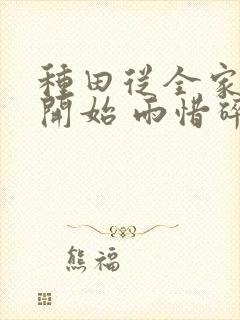 種田從全家
開始 雨惜
熊福